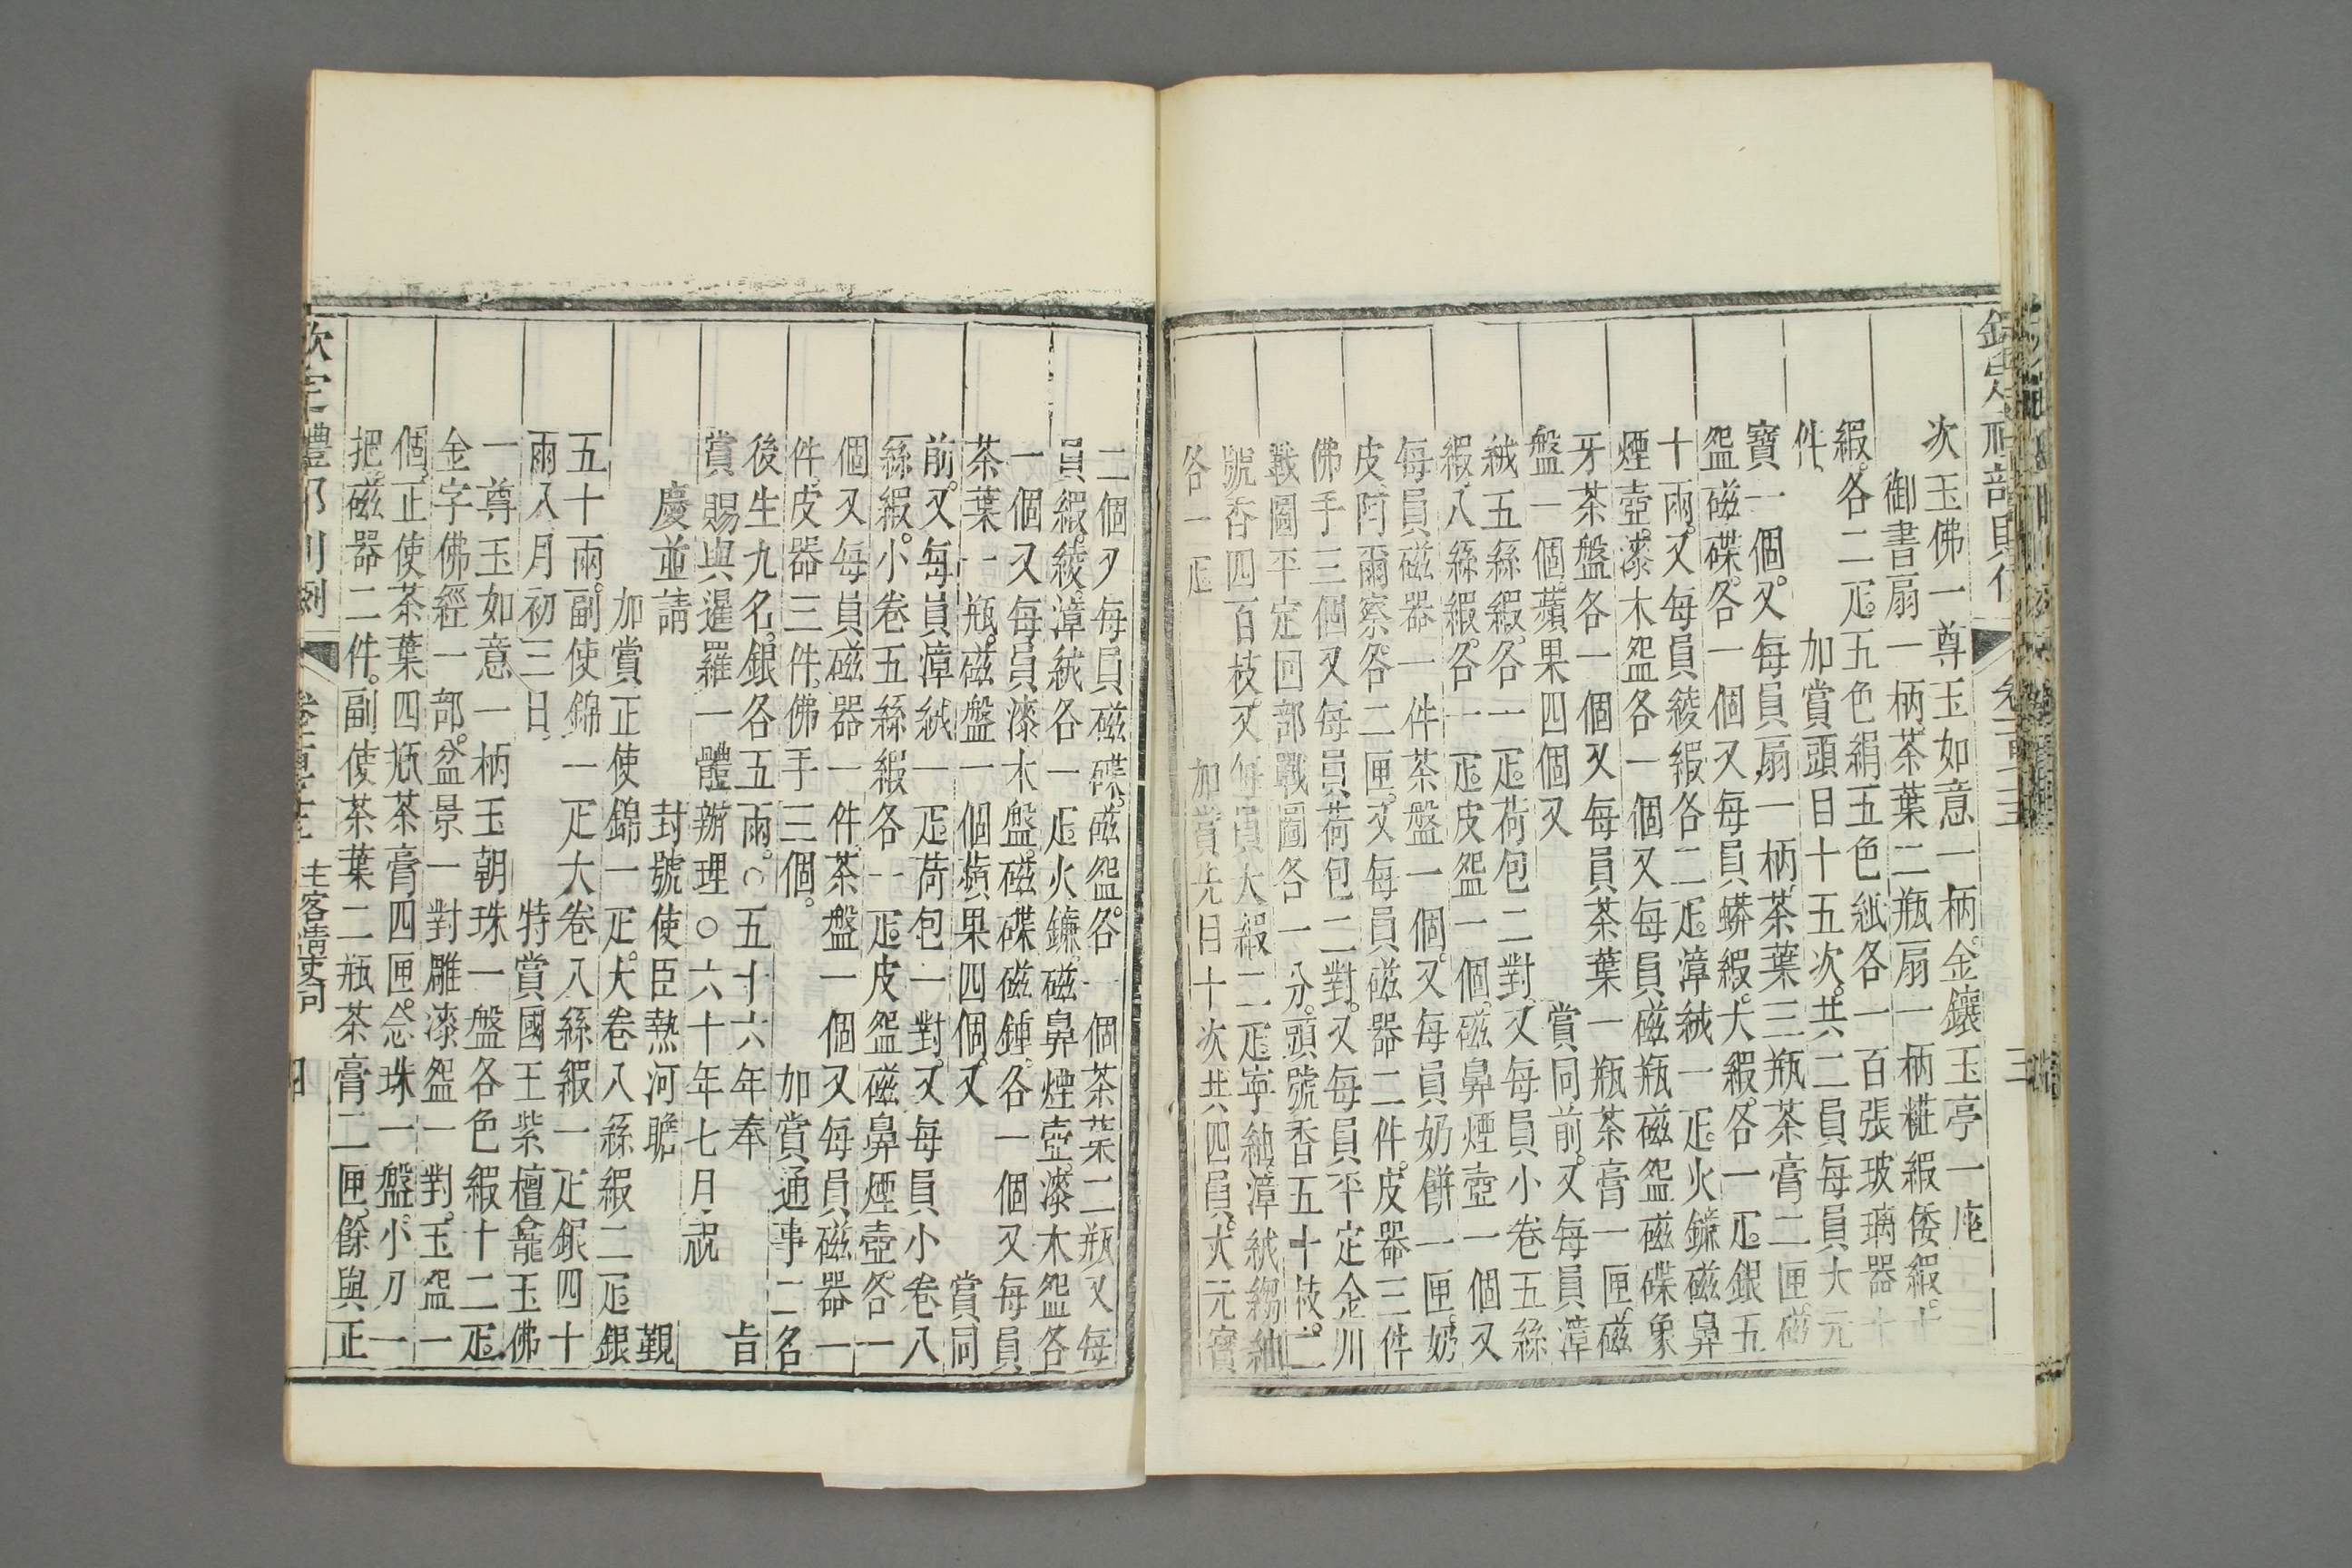 次玉佛一尊玉如意一柄。金鑲玉亭一座
御書扇一柄。茶葉二瓶。扇一柄。糚緞倭緞。十
緞。各二疋。五色絹五色紙各一百張玻璃器十
件、加賞頭目十五次。共二員每員大元
寶一個。又每員扇一柄。茶葉三瓶茶膏二匣磁
盌磁碟。各一個又每員蟒緞。大緞。各一疋。銀五
十兩。又每員綾緞各二疋。漳絨一疋。火鐮磁鼻
煙壺。漆木盌各一個又每員磁瓶磁盌磁碟象
牙茶盤各一個又每員茶葉一瓶茶膏一匣。磁
盤一個。蘋果四個又賞同前。又每員漳
絨五絲緞。各一疋荷包二對。又每員小卷五絲
緞。八絲緞。各一疋皮盌一個。磁鼻煙壺一個又
每員磁器一件茶盤一個。又每員奶餅一匣。奶
皮。阿爾察。各二匣。又每員磁器二件。皮器三件
佛手三個又每員荷包二對。又每員平定金川
戰圖平定回部戰圖各一分。頭號香五十枝。二
號香四百枝。又每員大緞二疋寧紬漳絨縐紬
各一疋加賞先日十次共四員。大元寶
二個又每員磁碟。磁盌。各一個茶葉二瓶又每
員緞。綾。漳絨各一疋火鐮。磁鼻煙壺。漆木盌各
一個又每員漆木盤。磁碟磁鍾。各一個又每員
茶葉一瓶。磁盤一個蘋果四個。又賞同
前。又每員漳絨一疋荷包一對。又每員小卷八
絲緞。小卷五絲緞各一疋皮盌磁鼻煙壺。各一
個又每員磁器一件。茶盤一個又每員磁器一
件。皮器三件。佛手三個。加賞通事二名
後生九名。銀各五兩。○五十六年奉旨
賞賜與暹羅一體辦理○六十年七月祝
慶並請封號使臣熱河瞻覲
加賞正使錦一疋。大卷八絲緞二疋銀
五十兩。副使錦一疋大卷八絲緞一疋銀四十
兩八月初三日。特賞國王紫檀龕玉佛
一尊玉如意一柄玉朝珠一盤各色緞十二疋。
金字佛經一部。盆景一對雕漆盌一對。玉盌一
個。正使茶葉四瓶茶膏四匣。念珠一盤。小刀一
把。磁器二件。副使茶葉二瓶茶膏二匣。餘與正
主客清吏司